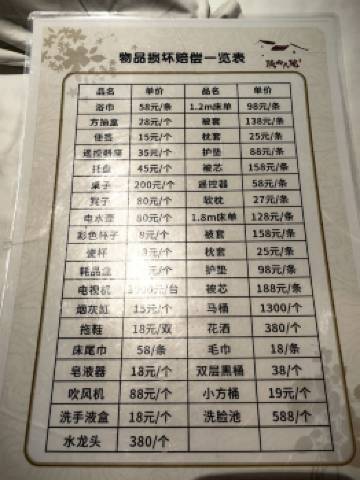 物品损坏赔偿一览表
品名 单价 品名 单价
浴巾 58元/条 1.2m床单 98元/条
方抽盒 28元/个 被套 138元/条
便签 15元/个 枕套 25元/条
遥控器座 35元/个 护垫 88元/条
托盘 45元/个 被芯 158元/条
桌子 200元/个 遥控器 58元/条
凳子 80元/个 软枕 27元/条
电水壶 80元/个 1.8m床单 128元/条
彩色杯子 9元/个 被套 158元/条
瓷杯 元/个 枕套 25元/条
耗品盒 元/个 护垫 98元/条
电视机 元/台 被芯 188元/条
烟灰缸 15元/个 马桶 1300/个
拖鞋 18元/双 花洒 380/个
床尾巾 58/条 毛巾 18/条
皂液器 18元/个 双层黑桶 38/个
吹风机 88元/个 小方桶 19元/个
洗手液盒 18元/个 洗脸池 588/个
水龙头 380/个